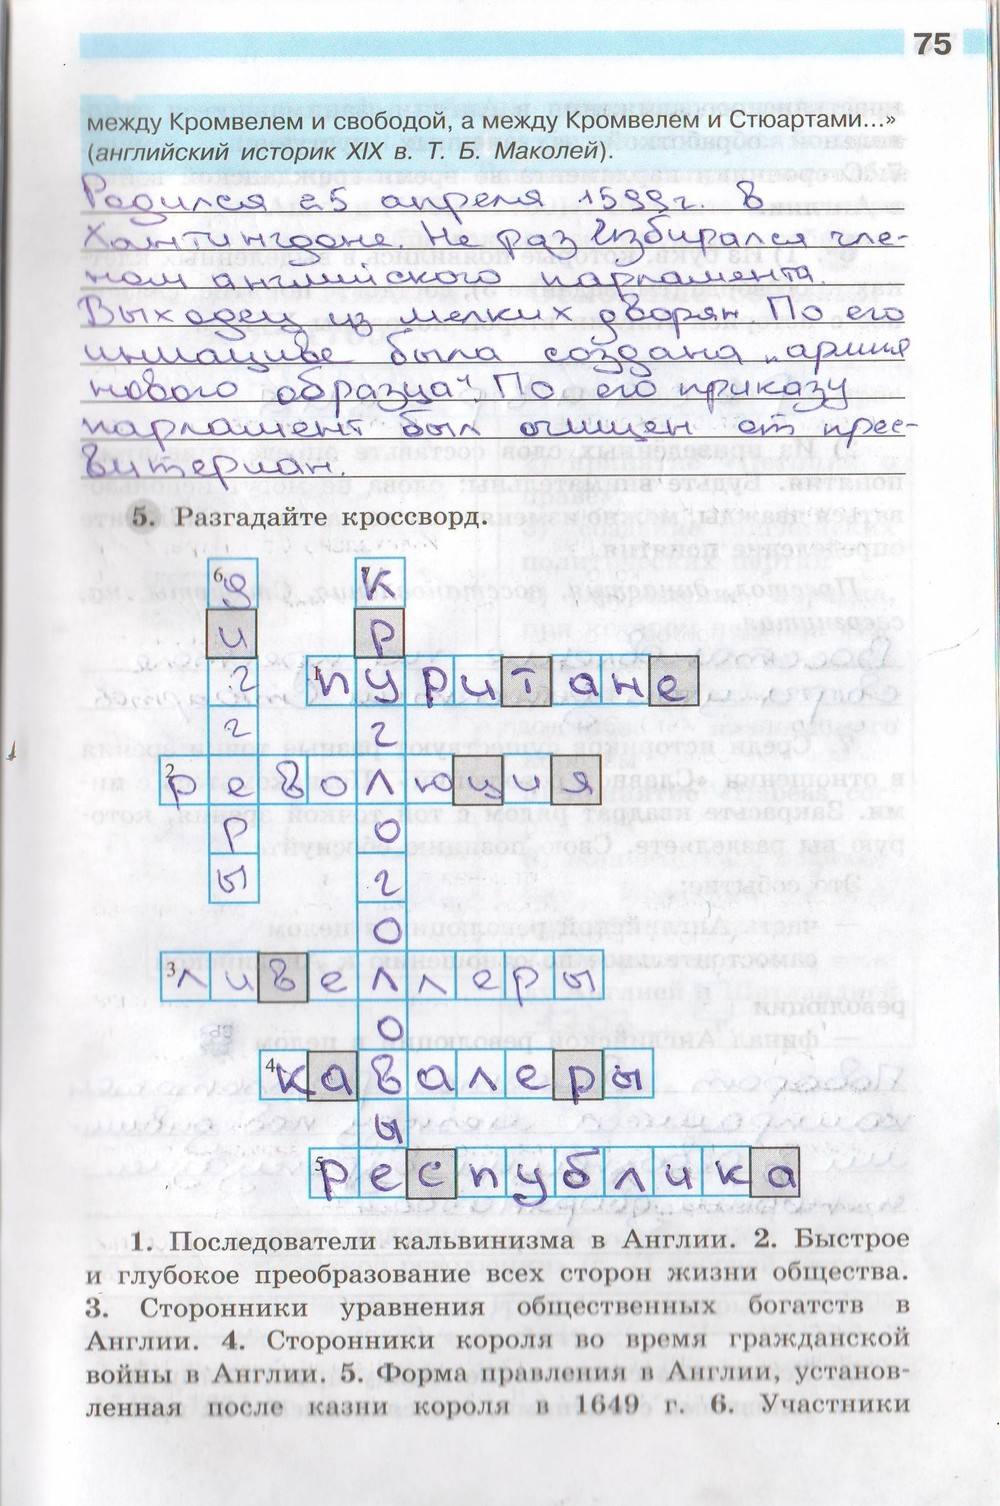 75
между Кромвелем и свободой, а между Кромвелем и Стюартами...»
(английский историк XIX в. Т. Б. Маколей).
Родился 25 апреля 1599г. в
Хантингдоне. Не раз избирался чле-
ном английского парламента.
Выходец из мелких дворян По его
инициативе была создана „армия
нового образца". По его приказу
парламент был очищен от прес-
витериан.
5. Разгадайте кроссворд.
6 диггеры
круглоголовые
1 пуритане
2 революция
3 ливеллеры
4 кавалеры
5 республика
1. Последователи кальвинизма в Англии. 2. Быстрое
и глубокое преобразование всех сторон жизни общества.
3. Сторонники уравнения общественных богатств в
Англии. 4. Сторонники короля во время гражданской
войны в Англии. 5. Форма правления в Англии, установ-
ленная после казни короля в 1649 г. 6. Участники